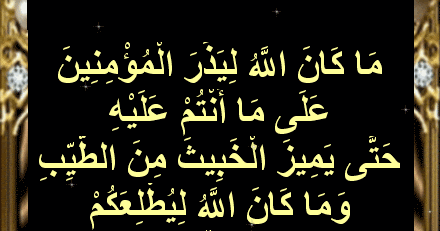 مَا كَانَ اللَّهُ لِيَذَرَ الْمُؤْمِنِينَ
عَلَى مَا أَنْتُمْ عَلَيْهِ
حَتَّى يَمِيزَ الْخَبِيثَ مِنَ الطَّيِّبِ
وَمَا كَانَ اللَّهُ لِيُطْلِعَكُمْ